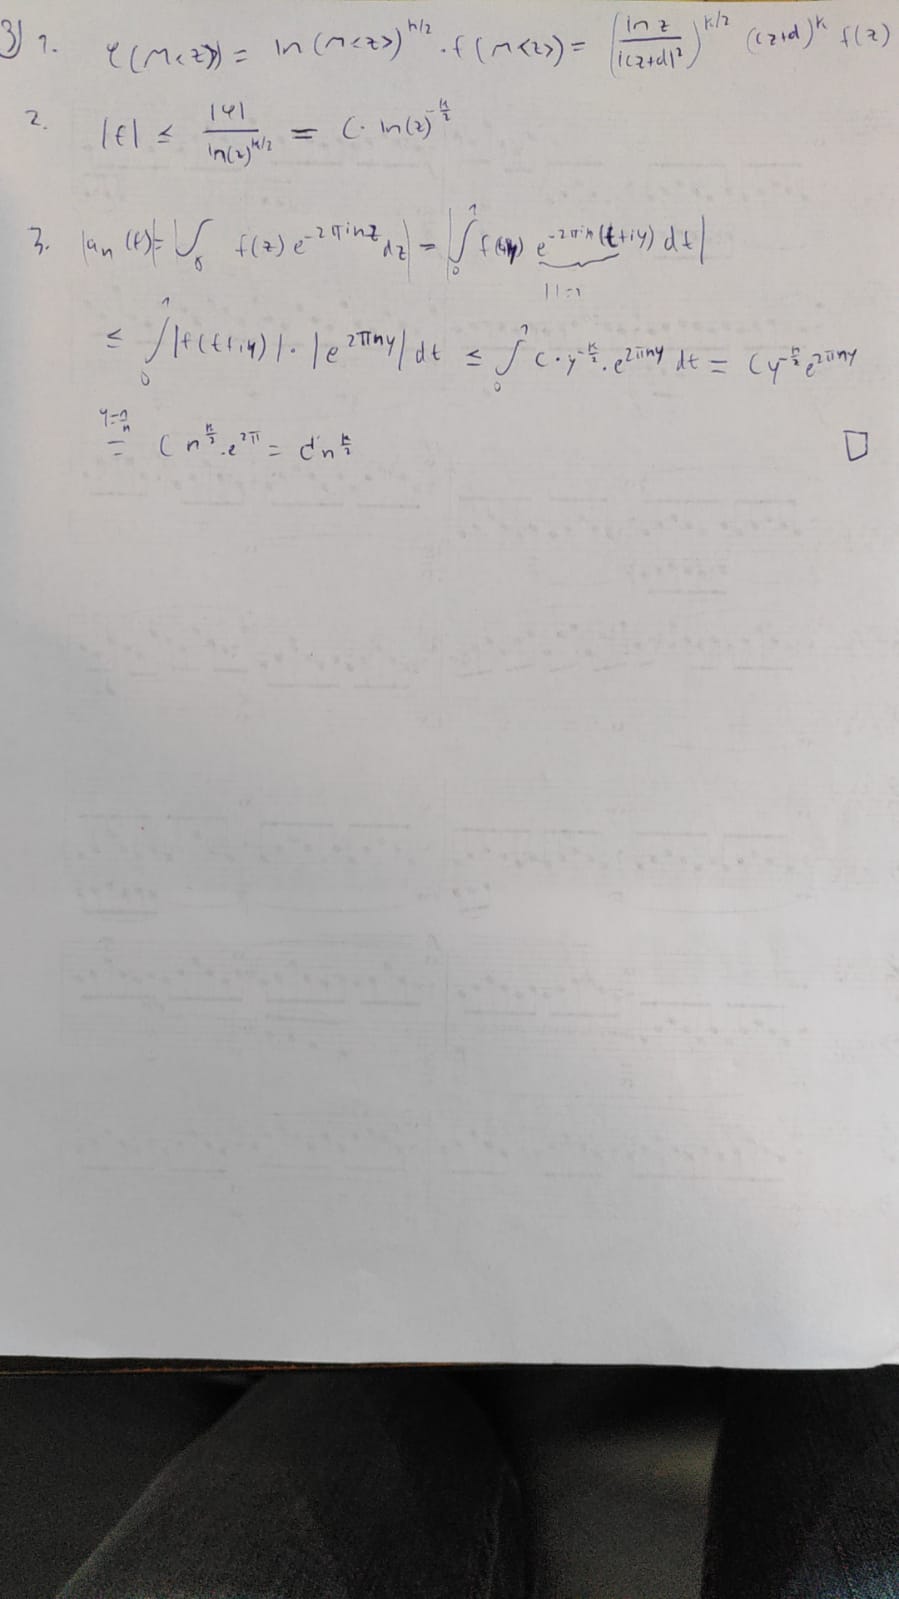 3) 1. φ(M<z>) = Im(M<z>)^{k/2} · f(M<z>) = (Im z / |cz+d|²)^{k/2} (cz+d)^k f(z)
2. |f| ≤ |φ| / Im(z)^{k/2} = C · Im(z)^{-k/2}
3. |a_n(f)| = |∫_γ f(z) e^{-2πinz} dz| = |∫_0^1 f(t+iy) e^{-2πin(t+iy)} dt|
| |=1
≤ ∫_0^1 |f(t+iy)| · |e^{2πny}| dt ≤ ∫_0^1 C · y^{-k/2} · e^{2πny} dt = C y^{-k/2} e^{2πny}
y=1/n = C n^{k/2} · e^{2π} = C' n^{k/2} □